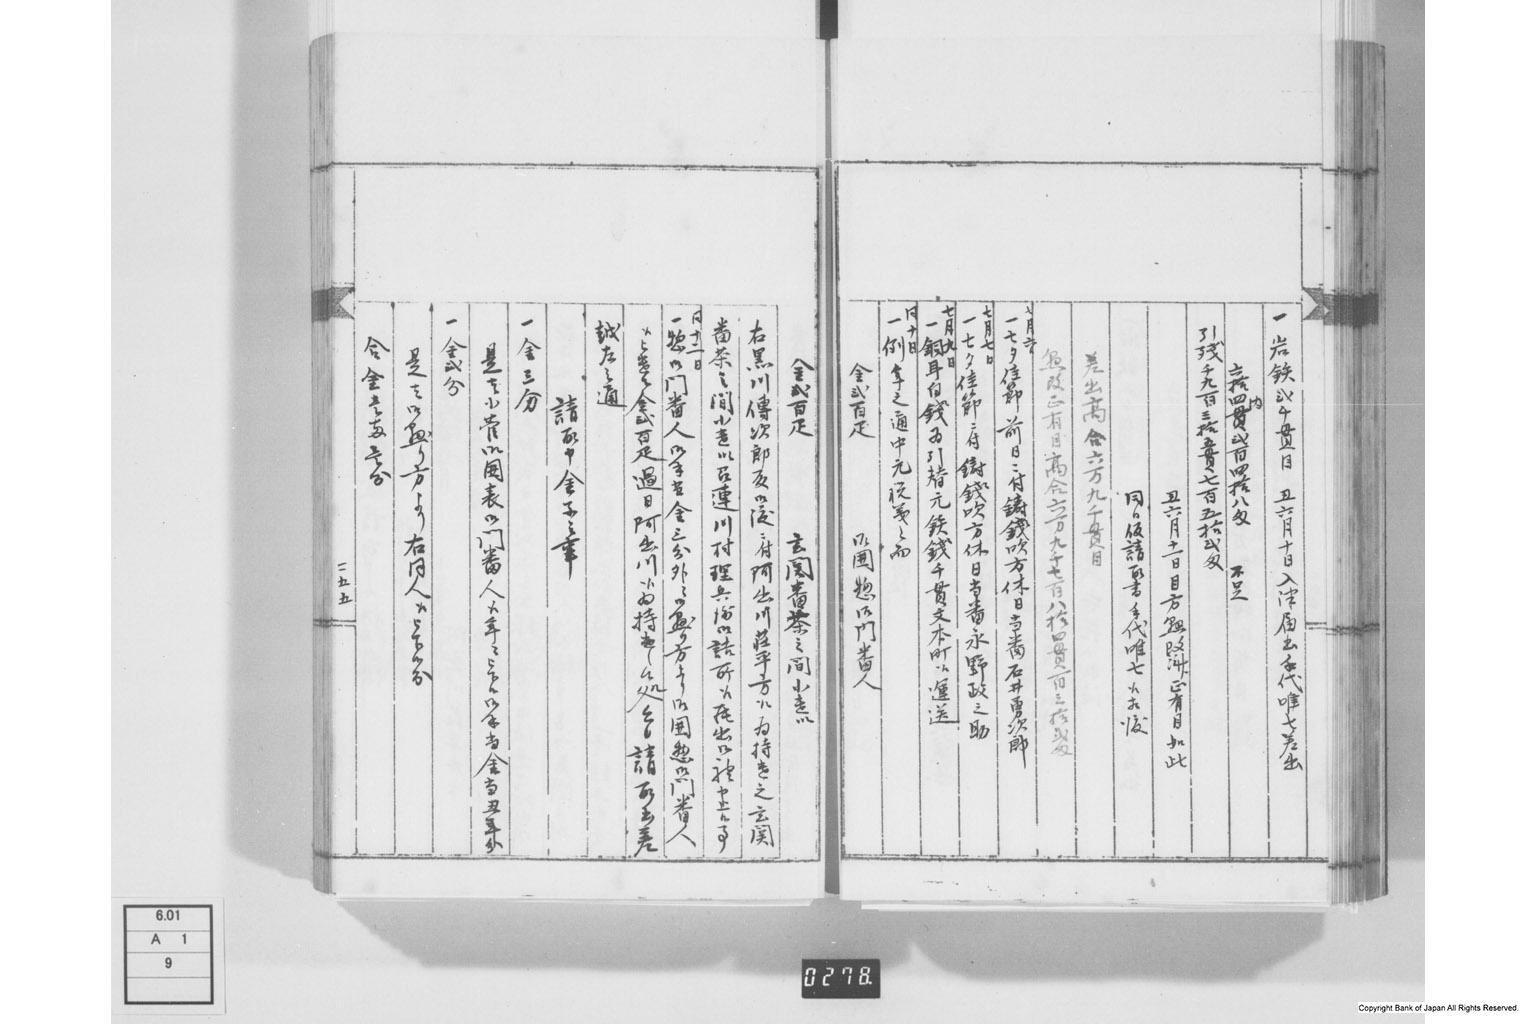 一岩鉄弐千貫目 丑六月十日入津届出手代唯七差出
内
六拾四貫弐百四拾八匁 不足
引残千九百三拾五貫七百五拾弐匁
丑六月十一日目方懸改済正有目如此
同日仮請取書手代唯七江相渡
差出高合六万九千貫目
懸改正有目高合六万九千七百八拾四貫百三拾弐匁
七月六日
一七夕佳節前日ニ付鋳銭吹方休日当番石井勇次郎
七月七日
一七夕佳節ニ付鋳銭吹方休日当番永野政之助
七月九日
一銅耳白銭為引替元鉄銭千貫文本町江運送
同十日
一例年之通中元祝義之而
金弐百疋 御囲惣御門番人
金弐百疋 玄関番茶之間小遣江
右黒川傳次郎殿御渡ニ付阿出川荘平方江為持遣之玄関
番茶之間小遣御召連川村理兵衛御詰所江罷出御禮申上候事
同十二日
一惣御門番人御手当金三分外ニ御懸り方より御囲惣御門番人
江被下金弐百疋過日阿出川江為持遣し候処今日請取書差
越左之通
請取申金子之事
一金三分
是者小菅御囲表御門番人江年々被下候御手当金当丑年分
一金弐分
是者御懸り方より右同人江被下候分
合金壱両壱分
一五五
6.01
A 1
9
0278.
Copyright Bank of Japan All Rights Reserved.